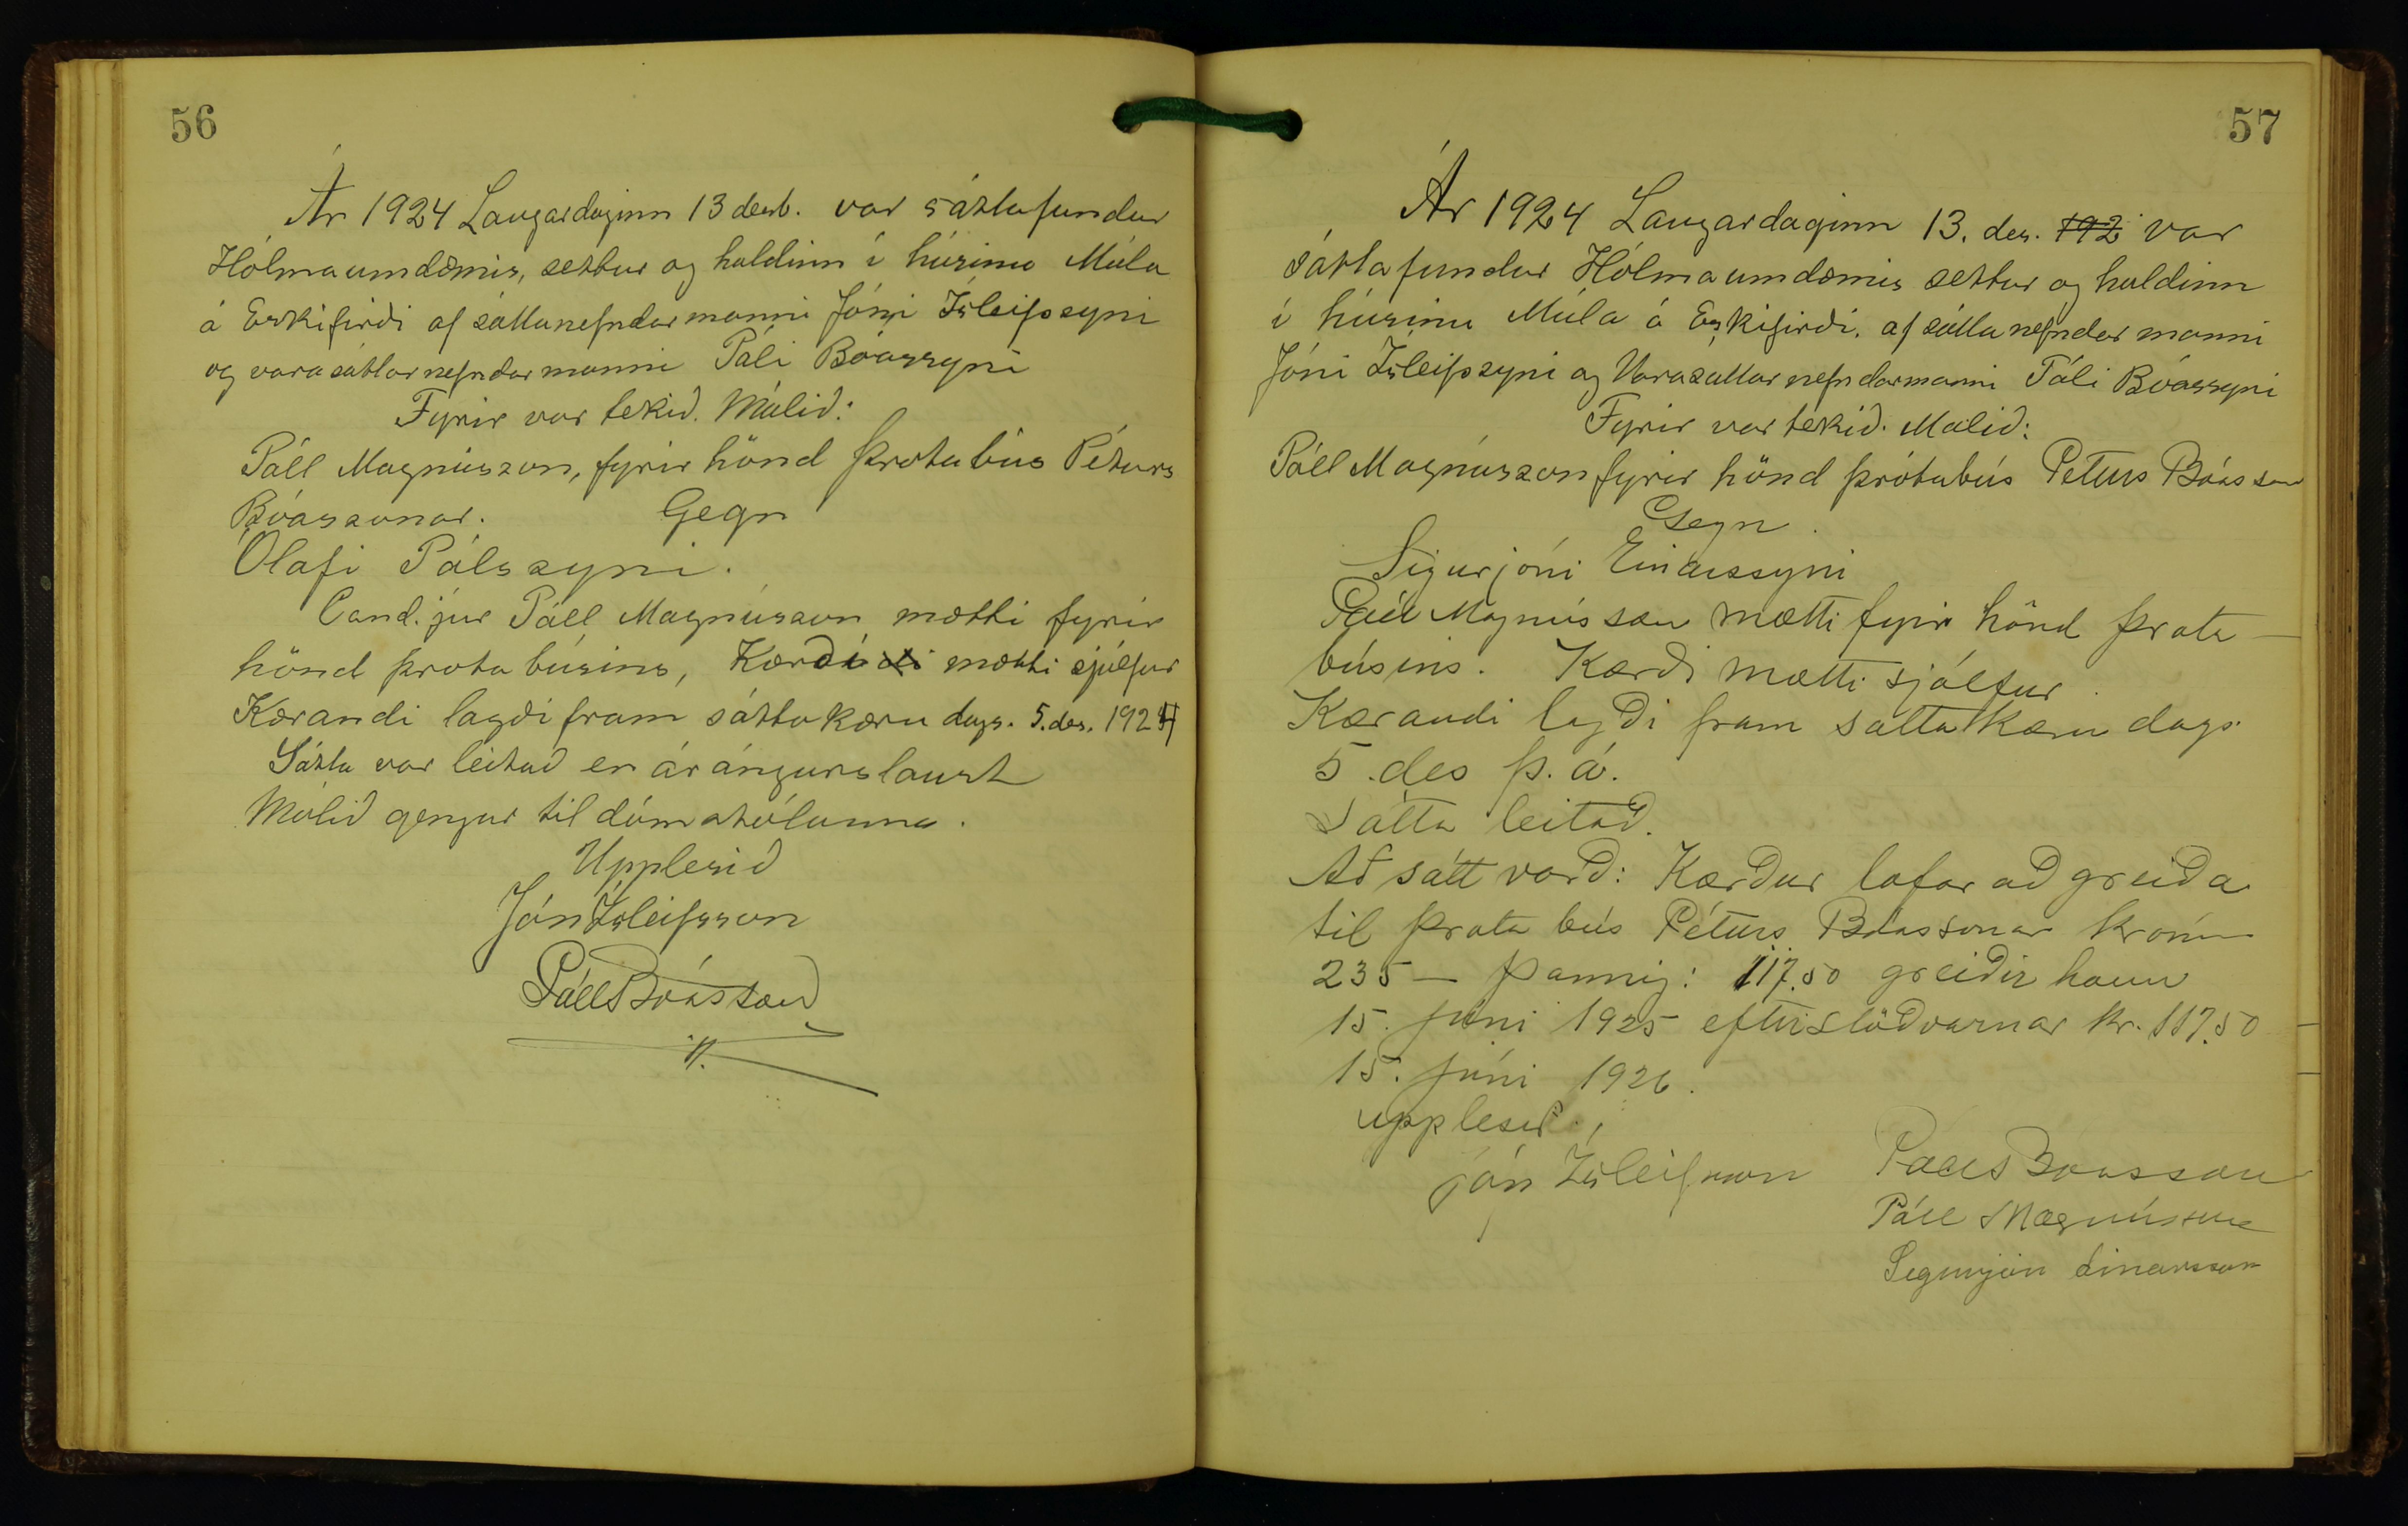 56
Ár 1924 Laugardaginn 13 desb. var sáttafundur
Hólmaumdæmis, settur og haldinn í húsinu Múla
á Eskifirði af sáttanefndarmanni Jóni Ísleifssyni
og varasáttarnefndarmanni Páli Bóassyni
Fyrir var tekið. Málið:
Páll Magnússon, fyrir hönd þrotabús Péturs
Bóassonar. Gegn
Ólafi Pálssyni.
Cand. jur Páll Magnússon mætti fyrir
hönd þrotabúsins, Kærði mætti sjálfur
Kærandi lagði fram sáttakæru dags. 5. des. 1924
Sátta var leitað en árángurslaust
Málið gengur til dómstólanna.
Upplesið
Jón Ísleifsson
Páll Bóasson
57
Ár 1924 Laugardaginn 13. des. 192 var
sáttafundur Hólmaumdæmis settur og haldinn
í húsinu Múla á Eskifirði. af sáttanefndarmanni
Jóni Ísleifssyni og Varasáttarnefndarmanni Páli Bóassyni
Fyrir var tekið. Málið:
Páll Magnússon fyrir hönd þrótabús Péturs Bóasson
Gegn.
Sigurjóni Einarssyni
Páll Magnússon mætti fyrir hönd þrota-
búsins. Kærði mætti sjálfur.
Kærandi lagði fram sáttakæru dags.
5. des þ. á.
Sátta leitað.
Að sátt varð: Kærður lofar að greiða
til þrotabús Péturs Bóassonar krónur
235 - þannig: 117.50 greiðir hann
15. júní 1925 eftirstöðvarnar kr. 117.50
15. júní 1926.
upplesið.
Jón Ísleifsson Páll Bóasson
Páll Magnússon
Sigurjón Einarsson